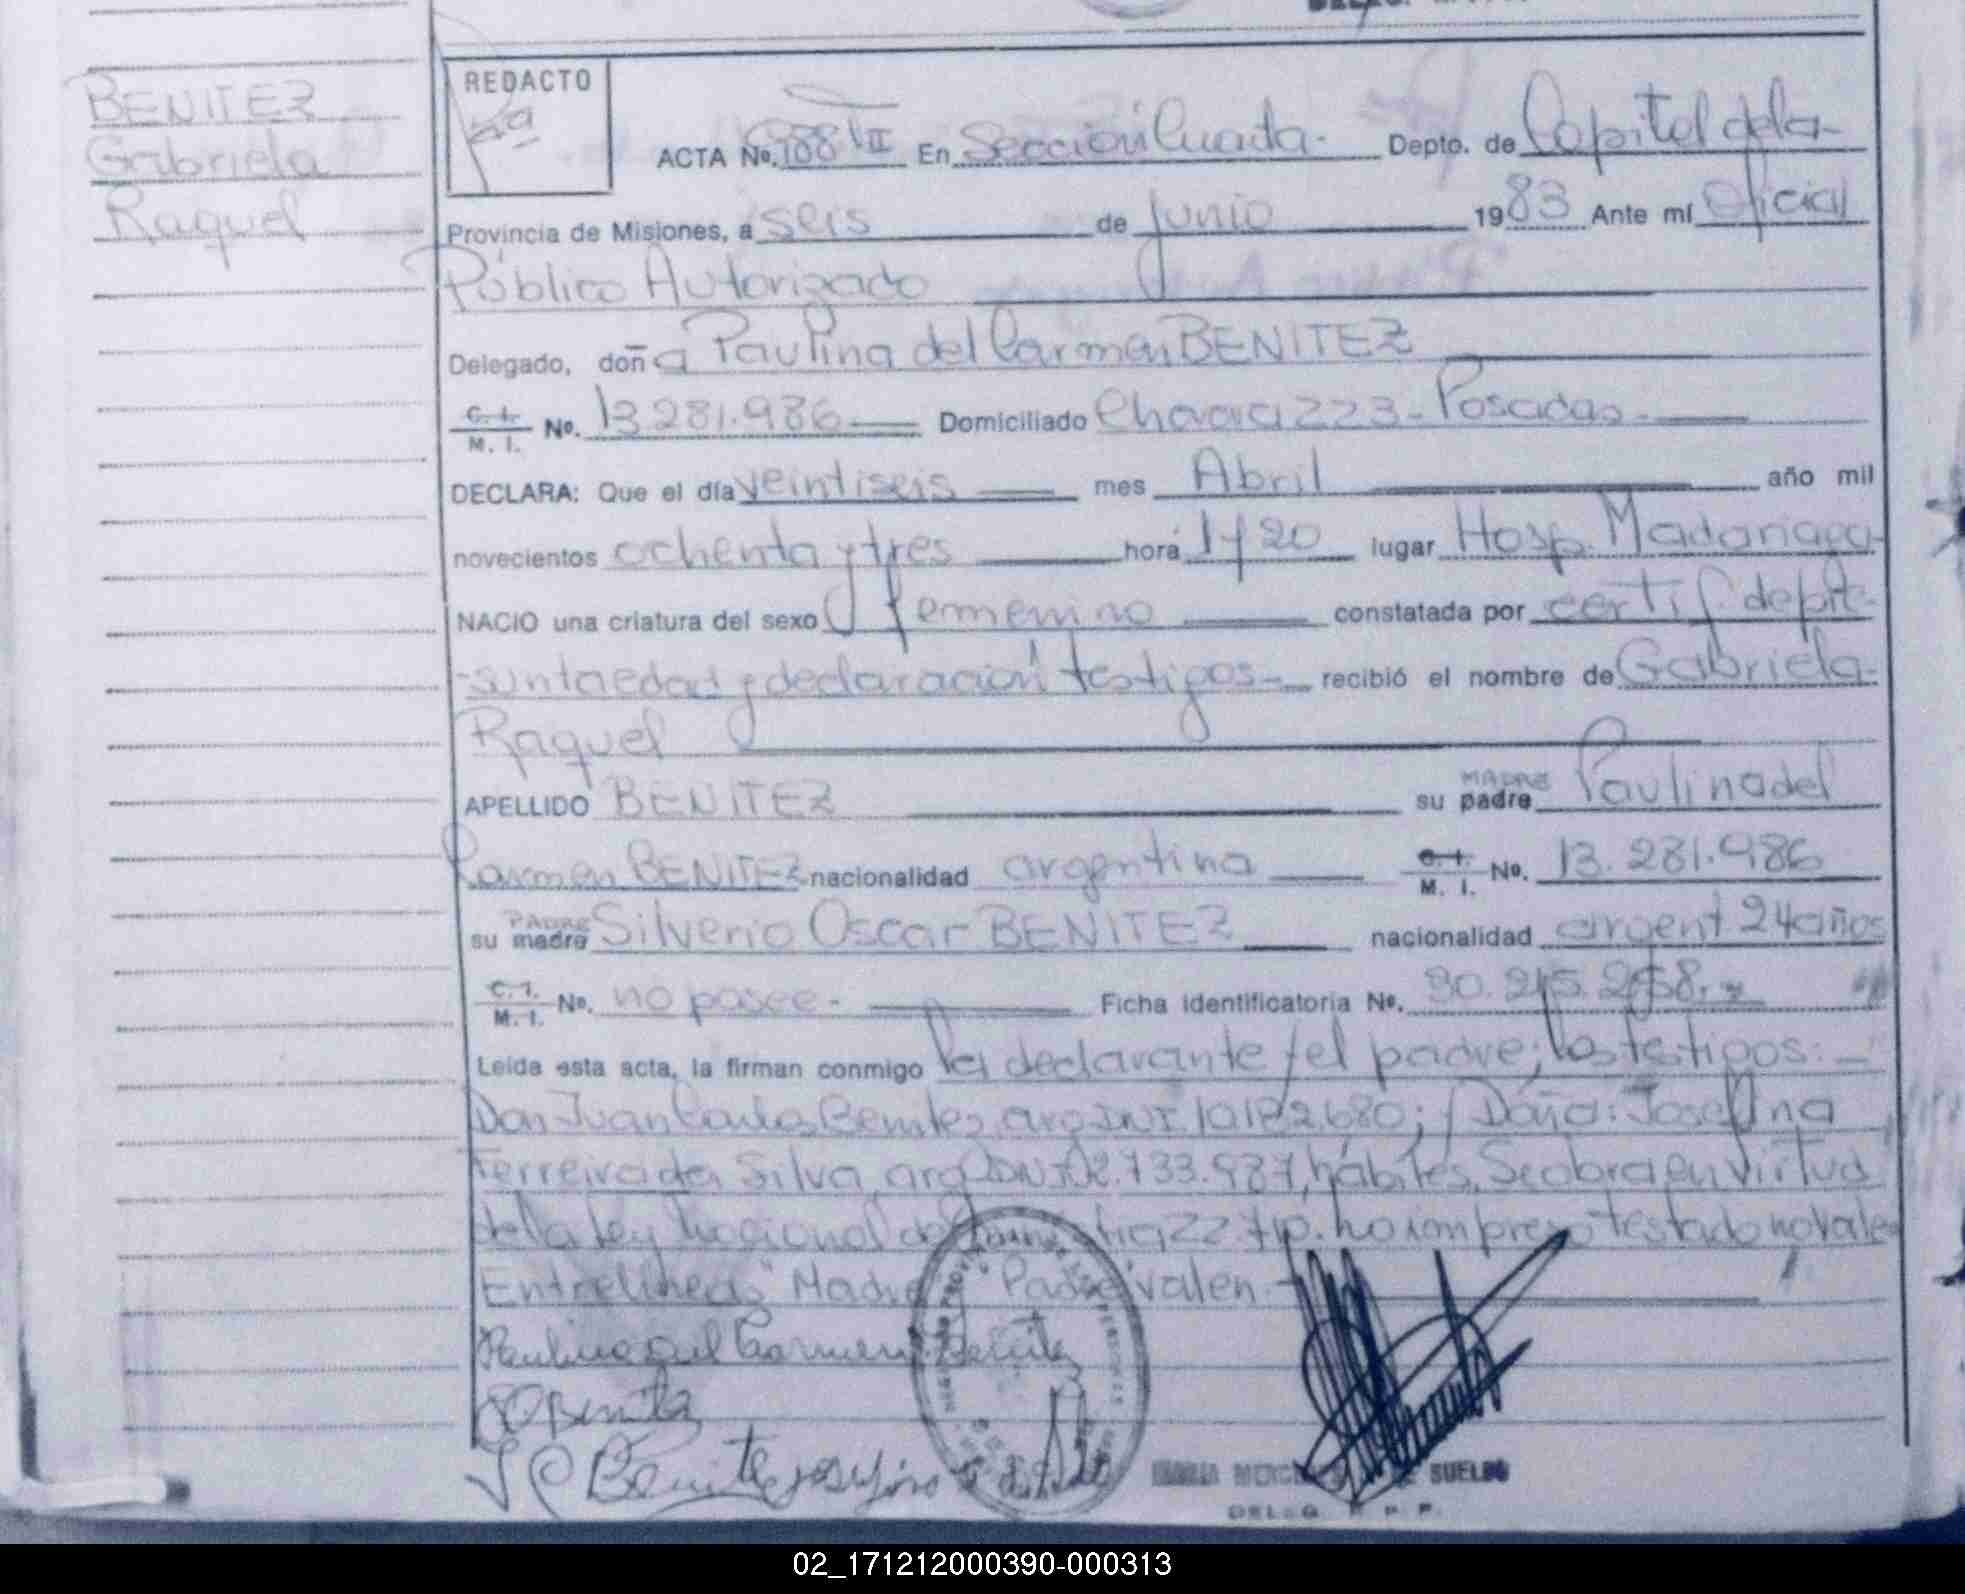 BENITEZ
Gabriela
Raquel
REDACTO
ACTA No. 788 VII En Sección Cuarta - Depto. de Capital de la -
Provincia de Misiones, a seis de junio 1983 Ante mí Oficial
Público Autorizado
Delegado, doña Paulina del Carmen BENITEZ
C. I. M. I. No. 13.281.986 Domiciliado Chacra 223 - Posadas -
DECLARA: Que el día veintiseis mes Abril año mil
novecientos ochenta y tres hora 1y20 lugar Hosp. Madariaga
NACIO una criatura del sexo femenino constatada por certif. de pre-
-sunta edad y declaración testigos - recibió el nombre de Gabriela -
Raquel
APELLIDO BENITEZ su MADRE padre Paulina del
Carmen BENITEZ nacionalidad argentina C. I. M. I. No. 13.281.986
su PADRE madre Silverio Oscar BENITEZ nacionalidad argent. 24 años
C. I. M. I. No. no posee - Ficha identificatoria No.
Leída esta acta, la firman conmigo la declarante y el padre; los testigos: -
Don Juan Carlos Benitez, arg. DNI. y Doña: Josefina
Ferreira da Silva, arg. DNI. 2.733.987, hábiles. Se obra en virtud
de la ley Nacional de 22.710. no impreso testado no vale
Entrelíneas "Madre" "Padre" valen. -
Paulina del Carmen Benitez
SO Benitez
J C Benitez Josefina
MARIA MERCEDES DE SUELDO
DELEG. R. P. P.
02_171212000390-000313